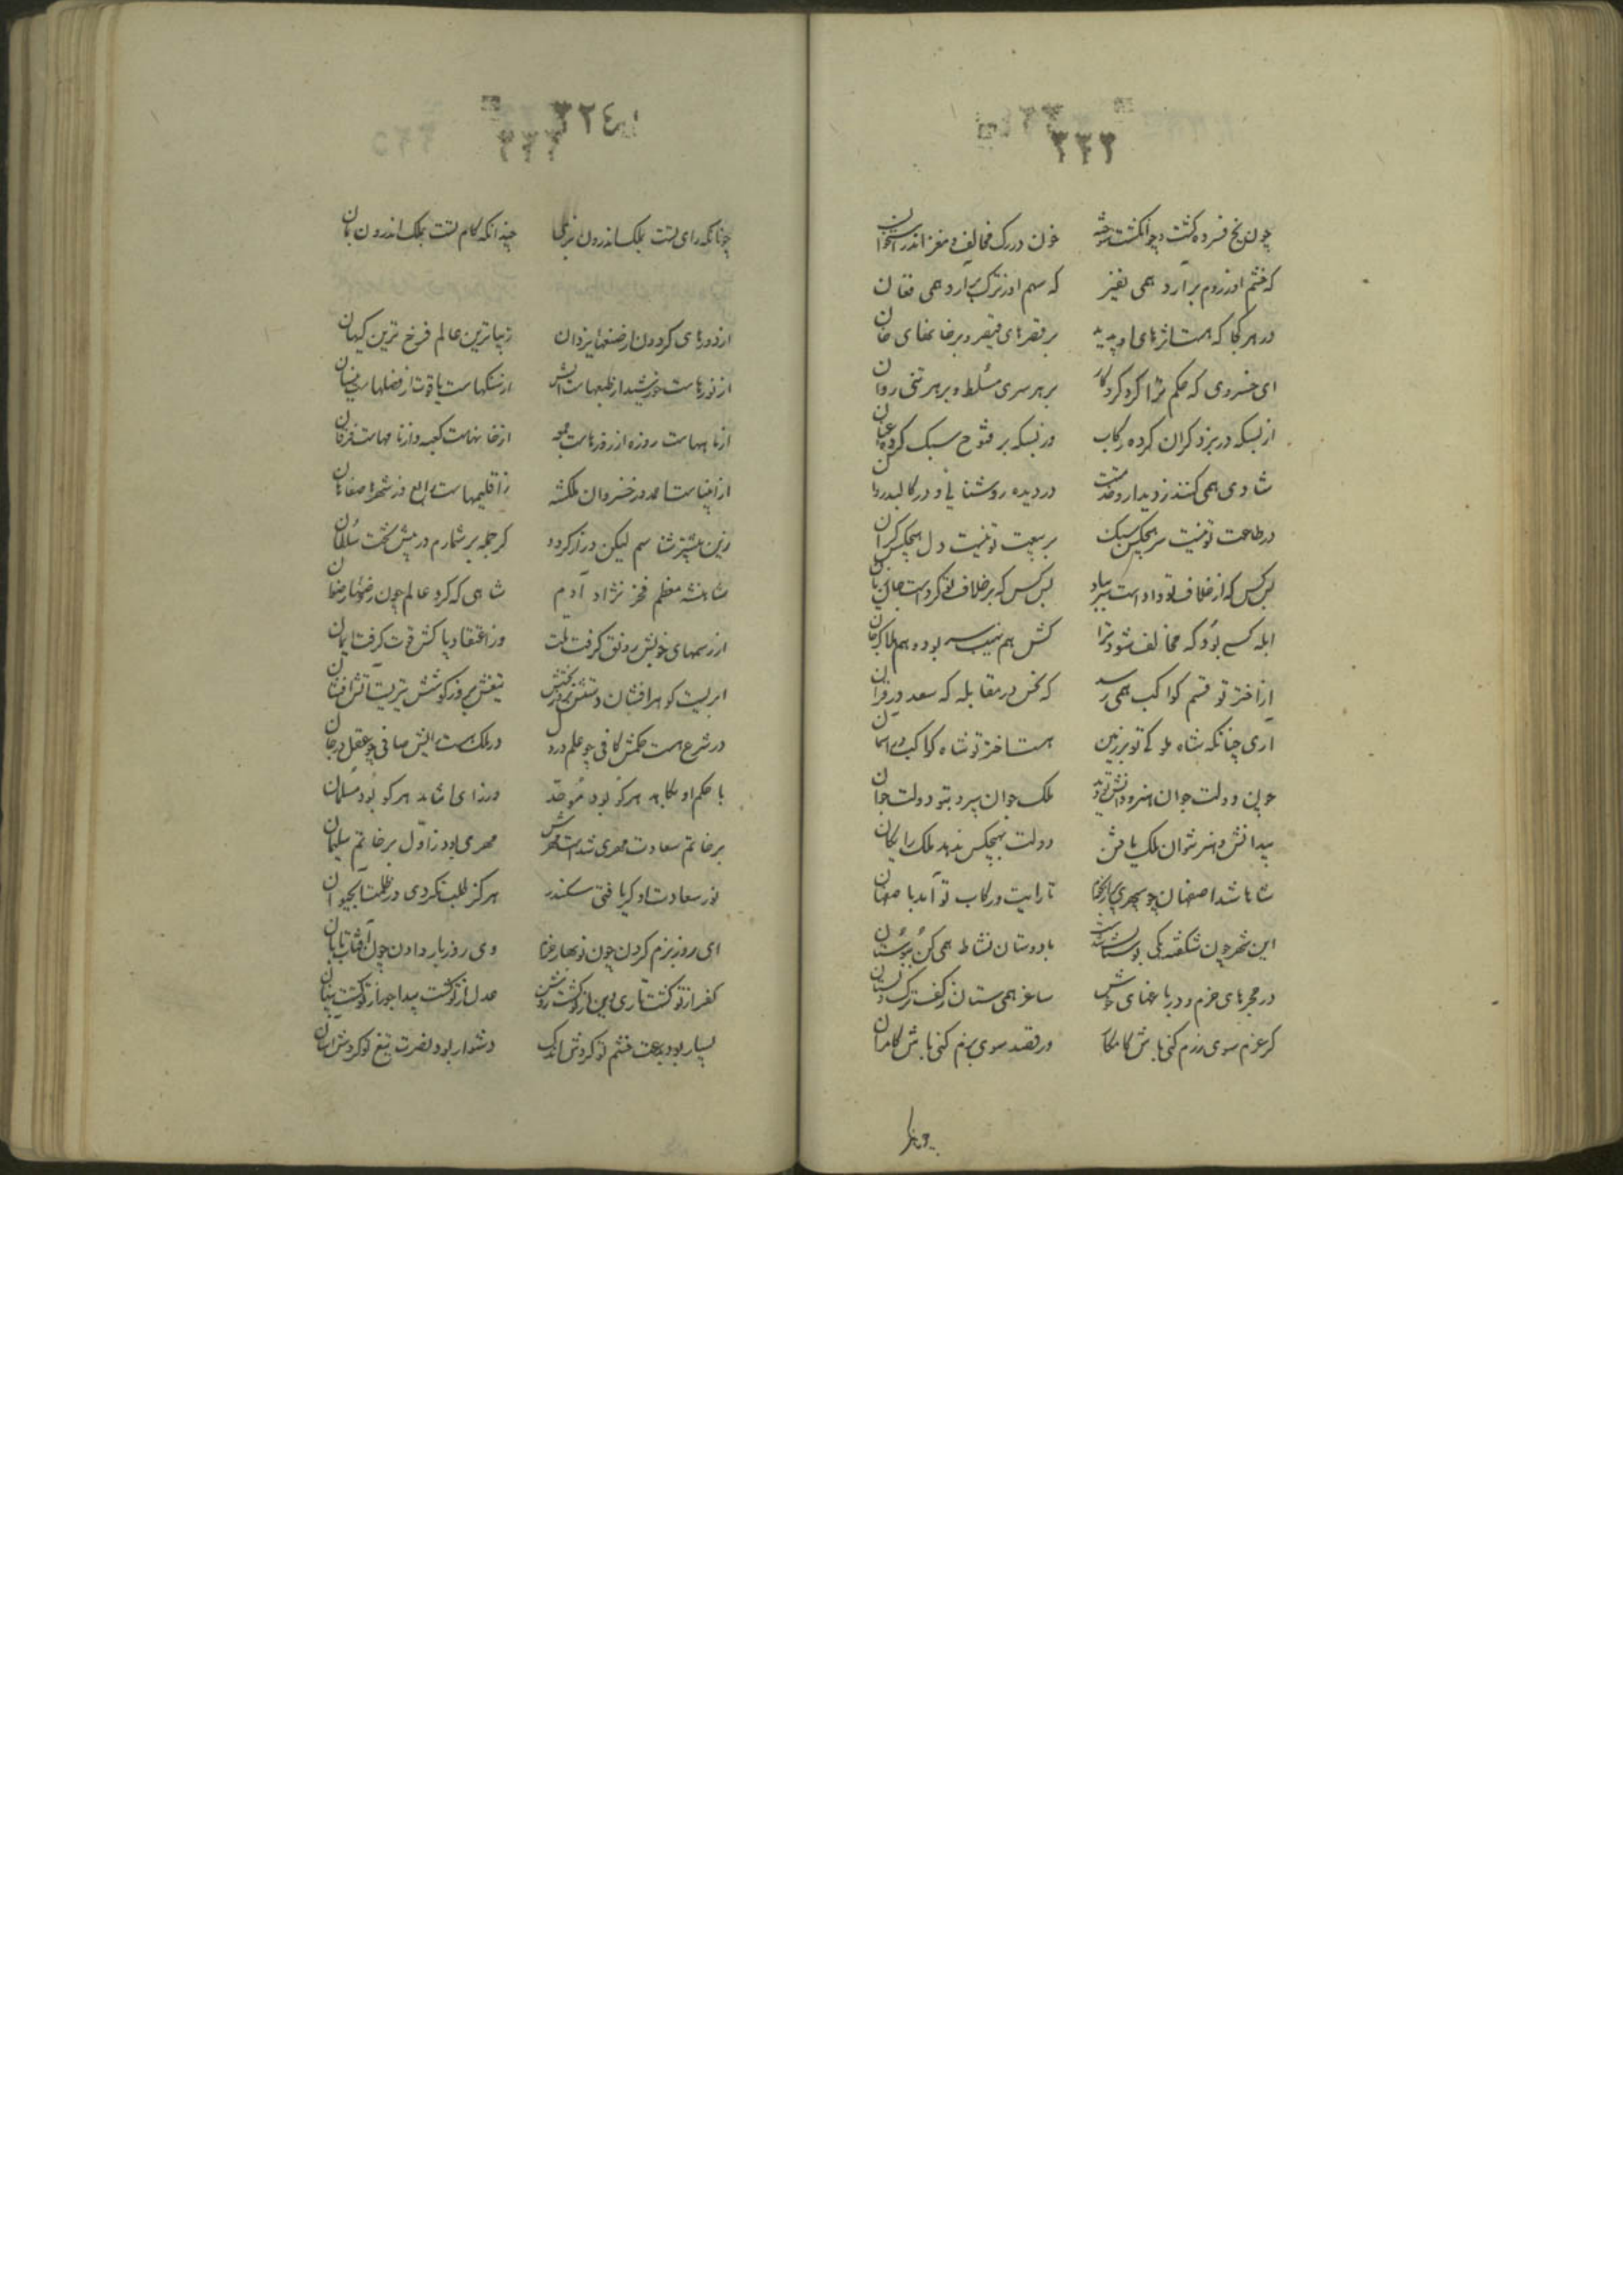 ٣٢٣
چون یخ فسرده گشت و چو انگشت سوخته خون در رگ مخالف و مغز اندر استخوان
که خشم او ز روم برآرد همی نفیر که سهم او ز ترک برآرد همی فغان
در هر کجا که هست اثرهای او پدید بر قصرهای قیصر و بر خانهای خان
ای خسروی که حکم ترا کرد کردکار بر هر سری مسلط و بر هر تنی روان
از بسکه در نبرد کران کرده رکاب وز بسکه بر فتوح سبک کرده عنان
شادی همی کنند ز دیدار و خدمتت در دیده روشنائی و در کالبد روان
در طاعت تو نیست سر هیچکس سبک بر بیعت تو نیست دل هیچکس کران
بس کس که از خلاف تو دادست سر بباد بس کس که بر خلاف تو کردست جان زیان
ابله کسی بود که مخالف شود ترا کش هم نهیب سر بود و هم هلاک جان
از اختر تو قسم کواکب همی رسد که نحس در مقابله که سعد در قران
اری چنانکه شاه ملوکی تو بر زمین هست اختر تو شاه کواکب در اسمان
چون دولت جوان هنر و دانش تو دید ملک جوان سپرد بتو دولت جوان
بیدانش و هنر نتوان ملک یافتن دولت بهیچکس ندهد ملک رایکان
شاها شد اصفهان چو سپهری پر از نجوم تا رایت و رکاب تو آمد باصفهان
این شهر چون شکفته یکی بوستان شدست با دوستان نشاط همی کن ببوستان
در حجرهای خرم و در باغهای خوش ساغر همی ستان ز کف ترک دلستان
کر عزم سوی رزم کنی باش کامکار ور قصد سوی بزم کنی باش کامران
چنانکه
٣٢٤
چونانکه رای تست بملک اندرون بزی چندانکه کام تست بملک اندرون بمان
از دورهای کردون از صنعهای یزدان زیباترین عالم فرخ ترین کیهان
از نورهاست خورشید از طبعهاست آتش از سنکهاست یاقوت از فصلهاست نیسان
از ماههاست روزه از روزهاست جمعه از خانهاست کعبه وز نامهاست فرقان
از انبیاست احمد وز خسروان ملکشه ز اقلیمهاست رابع وز شهرها صفاهان
زین بیشتر شناسم لیکن دراز کردد کر جمله بر شمارم در پیش تخت سلطان
شاهنشه معظم فخر نژاد آدم شاهی که کرد عالم چون روضهای رضوان
از رسمهای خوبش رونق کرفت ملت وز اعتقاد پاکش قوت کرفت ایمان
ابریست کوهر افشان دستش بروز بخشش تیغش بروز کوشش تیریست آتش افشان
در شرع هست حکمش کافی چو علم در دل در ملک هست رایش صافی چو عقل در جان
با حکم او نکاهد هر کو بود موحد وز رای او نتابد هر کو بود مسلمان
بر خاتم سعادت مهری شدست مهرش مهری که بود ز اول بر خاتم سلیمان
نور سعادت او کر یافتی سکندر هرکز طلب نکردی در ظلمت آب حیوان
ای روز بزم کردن چون نوبهار خندان وی روز بار دادن چون آفتاب تابان
کفر از تو کشت تاری دین از تو کشت روشن عدل از تو کشت پیدا جور از تو کشت پنهان
بسیار بود بدعت خشم تو کردش اندک دشوار بود نصرت تیغ تو کردش آسان